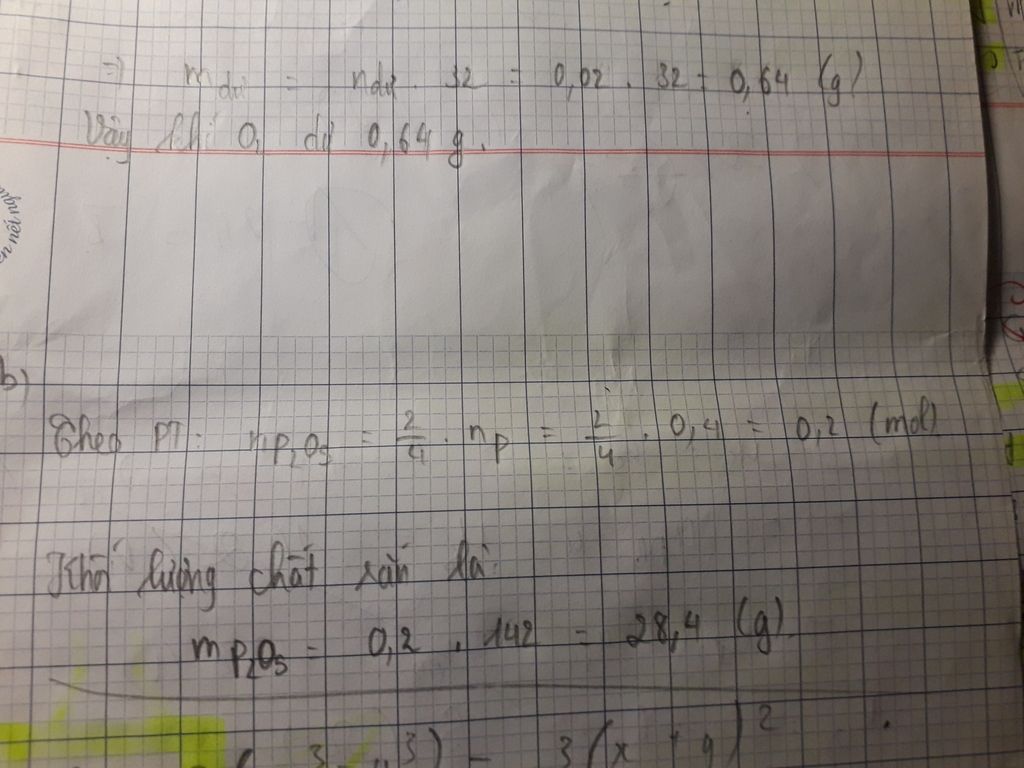 =) m dư = n dư . 32 = 0,02 . 32 = 0,64 (g)
Vậy khí O₂ dư 0,64 g.
b)
Theo PT: nP₂O₅ = 2/4 . nP = 2/4 . 0,4 = 0,2 (mol)
Khối lượng chất rắn là:
mP₂O₅ = 0,2 . 142 = 28,4 (g).
3(x + y)²